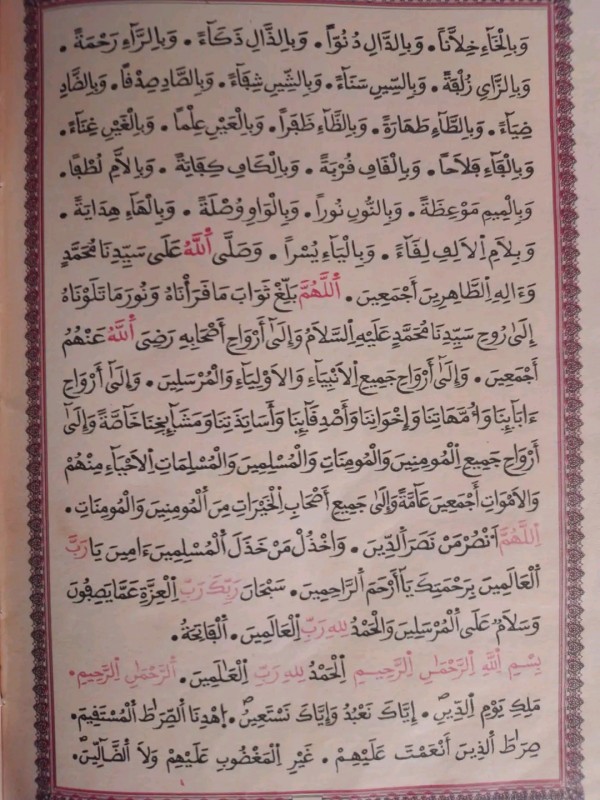 وَبِالْخَآءِ خِلَاَّناً. وَبِالدَّالِ دُنُوّاً. وَبِالذَّالِ ذَكَآءً. وَبِالرَّآءِ رَحْمَةً.
وَبِالزَّايِ زُلْفَةً. وَبِالسِّينِ سَنَآءً. وَبِالشِّينِ شِفَآءً. وَبِالصَّادِ صِدْقاً. وَبِالضَّادِ
ضِيَآءً. وَبِالطَّآءِ طَهَارَةً. وَبِالظَّآءِ ظَفَراً. وَبِالْعَيْنِ عِلْماً. وَبِالْغَيْنِ غِنَآءً.
وَبِالْفَآءِ فَلَاحاً. وَبِالْقَافِ قُرْبَةً. وَبِالْكَافِ كِفَايَةً. وَبِالَّلامِ لُطْفاً.
وَبِالْمِيمِ مَوْعِظَةً. وَبِالنُّونِ نُوراً. وَبِالْوَاوِ وُصْلَةً. وَبِالْهَآءِ هِدَايَةً.
وَبِلَامِ الْأَلِفِ لِقَآءً. وَبِالْيَآءِ يُسْراً. وَصَلَّى اللَّهُ عَلَى سَيِّدِنَا مُحَمَّدٍ
وَءَالِهِ الطَّاهِرِينَ أَجْمَعِينَ. اَللَّهُمَّ بَلِّغْ ثَوَابَ مَا قَرَأْنَاهُ وَنُورَ مَا تَلَوْنَاهُ
إِلَى رُوحِ سَيِّدِنَا مُحَمَّدٍ عَلَيْهِ السَّلَامُ وَإِلَى أَرْوَاحِ أَصْحَابِهِ رَضِيَ اللَّهُ عَنْهُمُ
أَجْمَعِينَ. وَإِلَى أَرْوَاحِ جَمِيعِ الْأَنْبِيَآءِ وَالْأَوْلِيَآءِ وَالْمُرْسَلِينَ. وَإِلَى أَرْوَاحِ
ءَابَآئِنَا وَأُمَّهَاتِنَا وَإِخْوَانِنَا وَأَصْدِقَآئِنَا وَأَسَاتِذَتِنَا وَمَشَآئِخِنَا خَاصَّةً وَإِلَى
أَرْوَاحِ جَمِيعِ الْمُومِنِينَ وَالْمُومِنَاتِ وَالْمُسْلِمِينَ وَالْمُسْلِمَاتِ الْأَحْيَآءِ مِنْهُمْ
وَالْأَمْوَاتِ أَجْمَعِينَ عَآمَّةً وَإِلَى جَمِيعِ أَصْحَابِ الْخَيْرَاتِ مِنَ الْمُومِنِينَ وَالْمُومِنَاتِ.
اَللَّهُمَّ انْصُرْ مَنْ نَصَرَ الدِّينَ. وَاخْذُلْ مَنْ خَذَلَ الْمُسْلِمِينَ ءَامِينَ يَا رَبَّ
الْعَالَمِينَ بِرَحْمَتِكَ يَا أَرْحَمَ الرَّاحِمِينَ. سُبْحَانَ رَبِّكَ رَبِّ الْعِزَّةِ عَمَّا يَصِفُونَ
وَسَلَامٌ عَلَى الْمُرْسَلِينَ وَالْحَمْدُ لِلهِ رَبِّ الْعَالَمِينَ. الْفَاتِحَةُ.
بِسْمِ اللَّهِ الرَّحْمَٰنِ الرَّحِيمِ الْحَمْدُ لِلهِ رَبِّ الْعَٰلَمِينَ. الرَّحْمَٰنِ الرَّحِيمِ.
مَلِكِ يَوْمِ الدِّينِ. إِيَّاكَ نَعْبُدُ وَإِيَّاكَ نَسْتَعِينُ. اِهْدِنَا الصِّرَٰطَ الْمُسْتَقِيمَ.
صِرَٰطَ الَّذِينَ أَنْعَمْتَ عَلَيْهِمْ. غَيْرِ الْمَغْضُوبِ عَلَيْهِمْ وَلَا الضَّآلِّينَ.